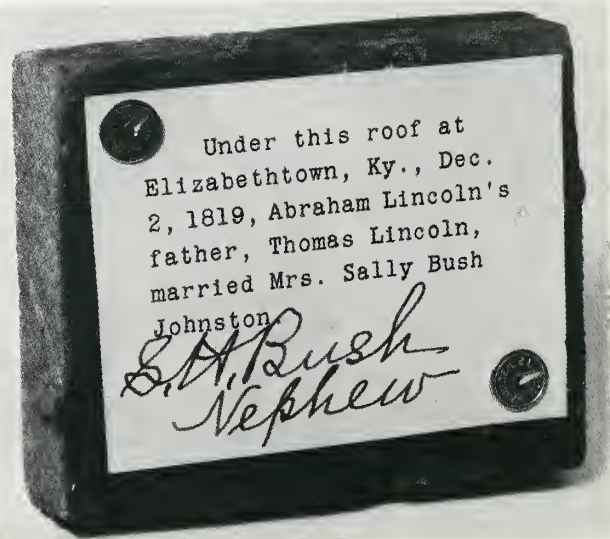 Under this roof at
Elizabethtown, Ky., Dec.
2, 1819, Abraham Lincoln's
father, Thomas Lincoln,
married Mrs. Sally Bush
Johnston
S. H. Bush
Nephew